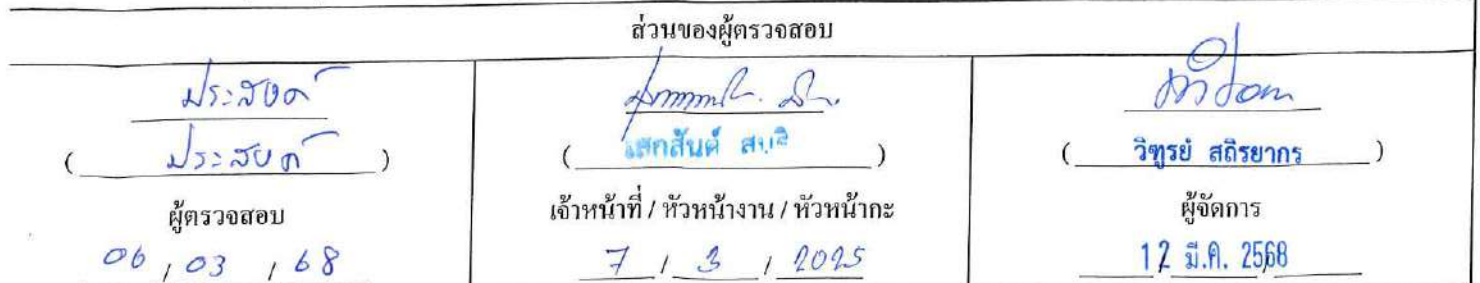 ส่วนของผู้ตรวจสอบ
ประสงค์
( ประสงค์ )
ผู้ตรวจสอบ
06 / 03 / 68
( เสกสันต์ )
เจ้าหน้าที่ / หัวหน้างาน / หัวหน้ากะ
7 / 3 / 2025
( วิฑูรย์ สถิรยากร )
ผู้จัดการ
12 มี.ค. 2568